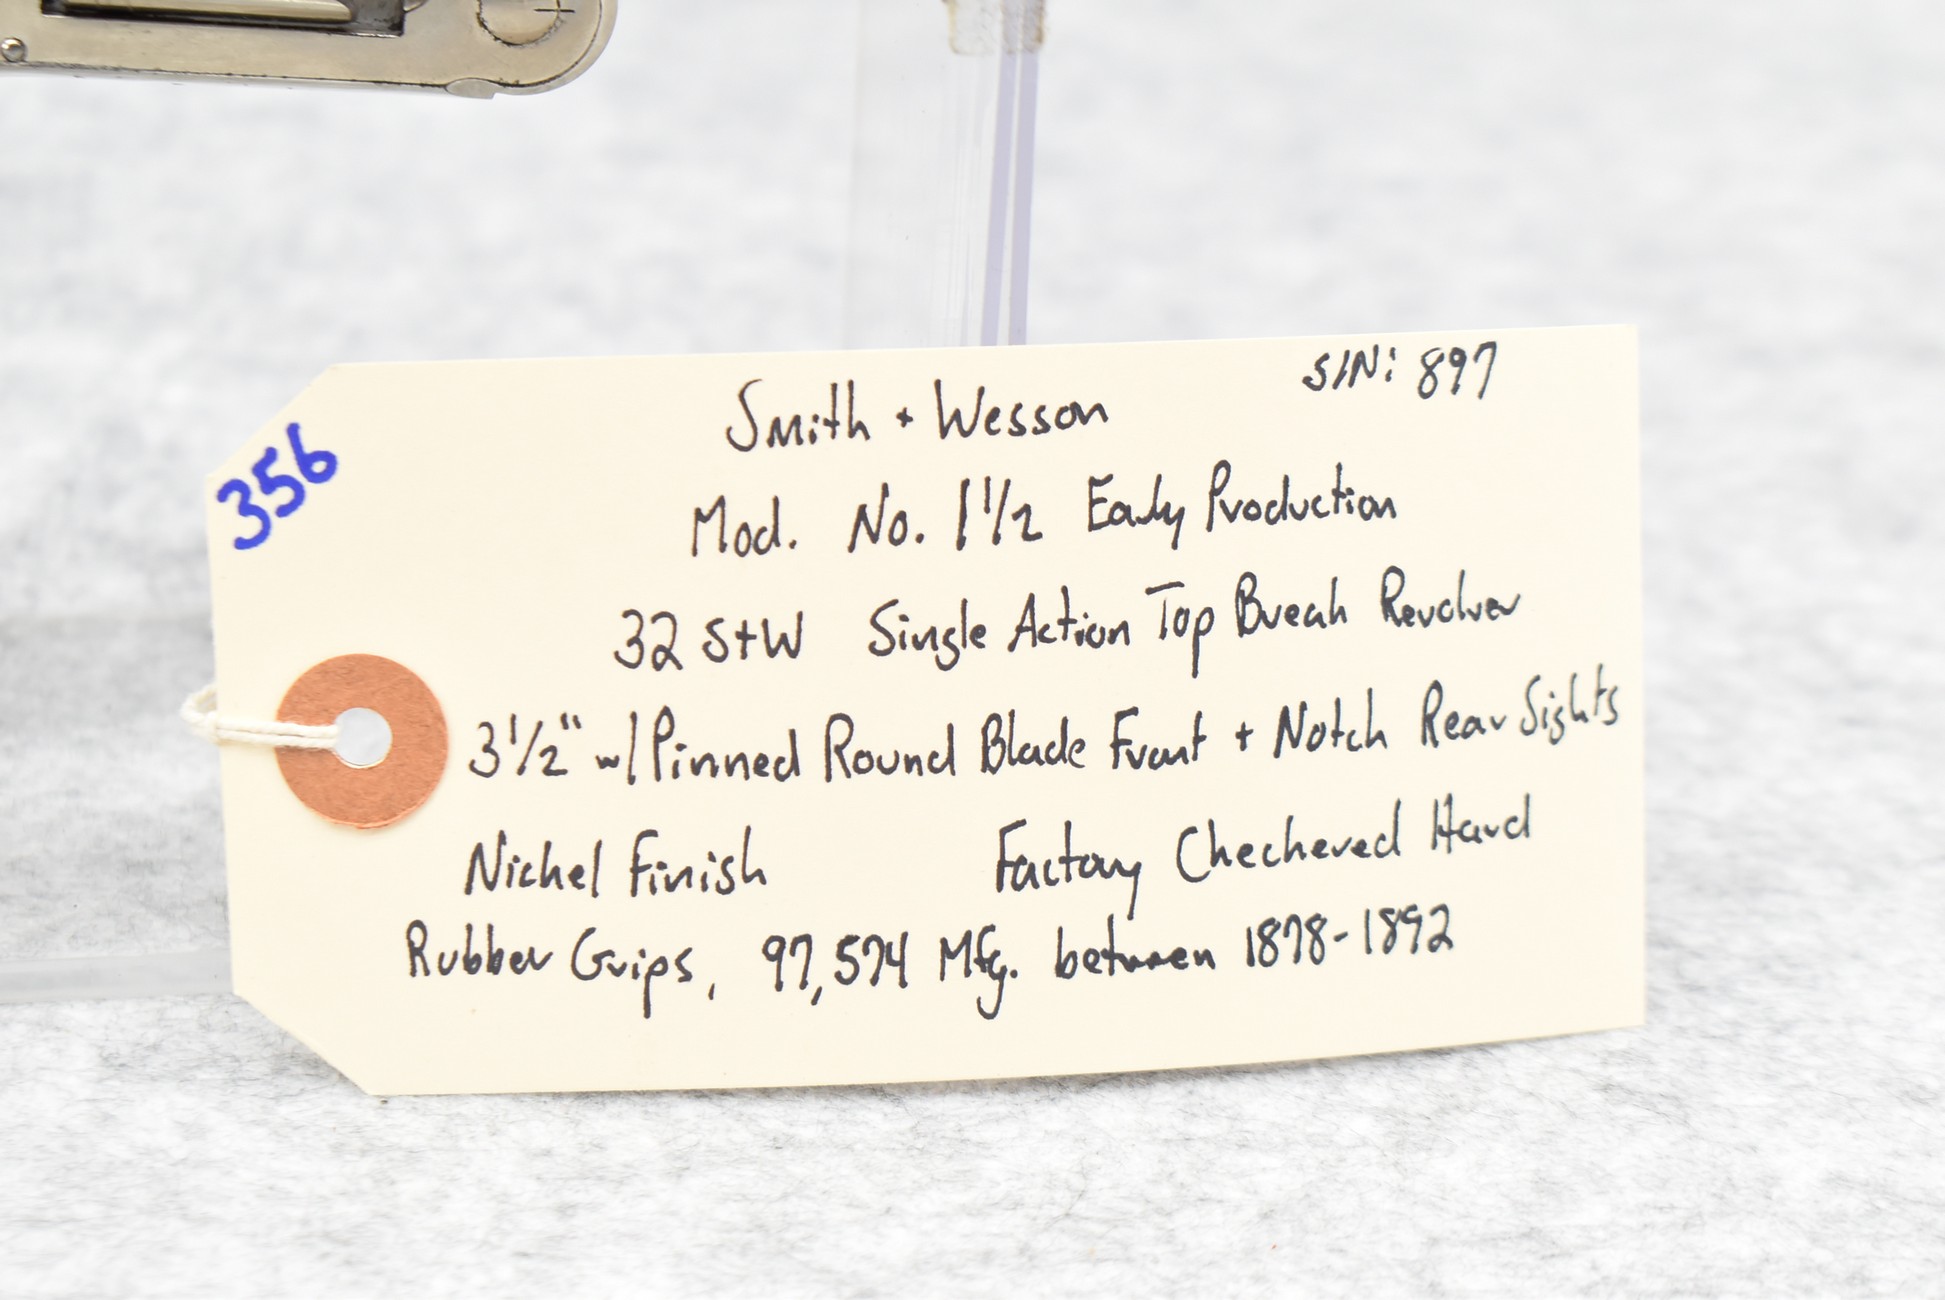 S/N: 897
Smith + Wesson
356
Mod. No. 1 1/2 Early Production
32 S+W Single Action Top Break Revolver
3 1/2" w/ Pinned Round Blade Front + Notch Rear Sights
Nickel Finish Factory Checkered Hard
Rubber Grips, 97,574 Mfg. between 1878-1892